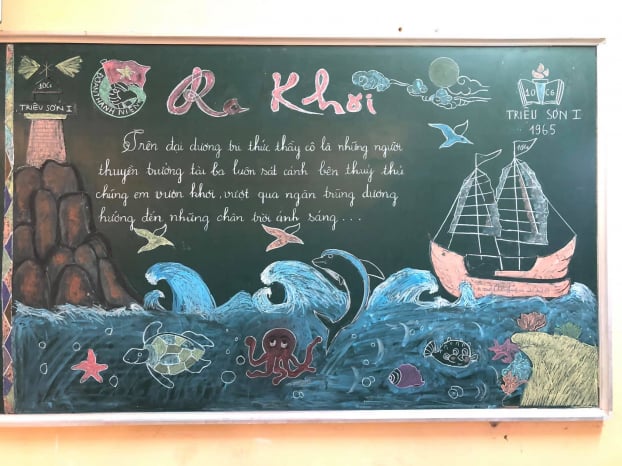 10C6
TRIỆU SƠN I
ĐOÀN THANH NIÊN
Ra Khơi
10 C6
TRIỆU SƠN I
1965
Trên đại dương tri thức thầy cô là những người
thuyền trưởng tài ba luôn sát cánh bên thuỷ thủ
chúng em vươn khơi, vượt qua ngàn trùng dương
hướng đến những chân trời ánh sáng...